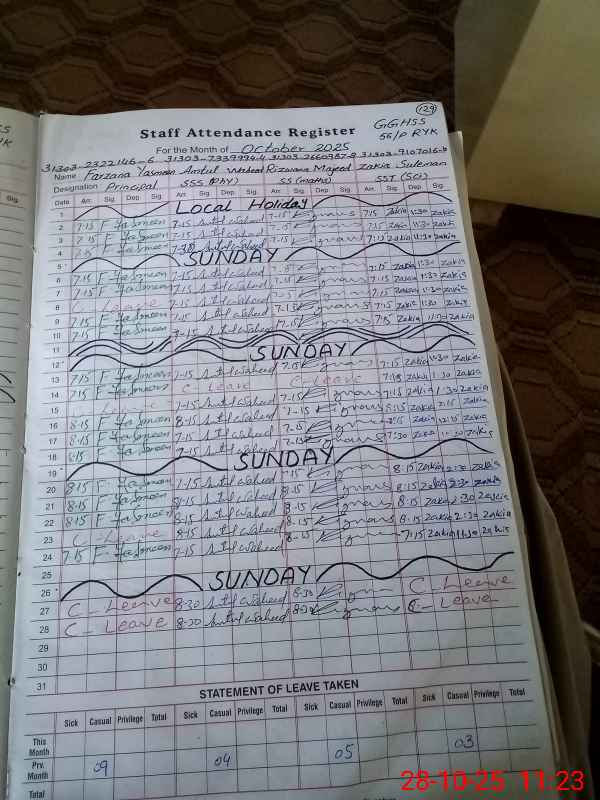 129
Staff Attendance Register
GGHSS
56/P RYK
For the Month of October 2025
31303-2322146-6 31303-7339994-4 31303-2660987-8 31303-9107016-8
Name Farzana Yasmeen Amtul Waheed Rizwana Majeed Zakia Suleman
Designation Principal SSS (Phy) SS (maths) SST (Sci)
Date Arr. Sig. Dep. Sig. Arr. Sig. Dep. Sig. Arr. Sig. Dep. Sig. Arr. Sig. Dep. Sig.
1 Local Holiday
2 7-15 F-Yasmeen 7-15 Amtul Waheed 7-15 7:15 Zakia 11:30 Zakia
3 7-15 F-Yasmeen 7-15 Amtul Waheed 7-15 7:15 Zakia 11:30 Zakia
4 7-15 F-Yasmeen Amtul Waheed 7-15 Zakia 11:30 Zakia
5 SUNDAY
6 7-15 F-Yasmeen 7-15 Amtul Waheed 7-15 7:15 Zakia 1:30 Zakia
7 7-15 F-Yasmeen 7-15 Amtul Waheed 7-15 7:15 Zakia 1:30 Zakia
8 C-Leave 7-15 Amtul Waheed 7-15 7:15 Zakia 1:30 Zakia
9 7-15 F-Yasmeen 7-15 Amtul Waheed 7-15 7:15 Zakia Zakia
10 7-15 F-Yasmeen 7-15 Amtul Waheed 7-15 7:15 Zakia Zakia
11
12 SUNDAY
13 7-15 F-Yasmeen 7-15 Amtul Waheed 7-15 7:15 Zakia 1:30 Zakia
14 7-15 F-Yasmeen C-Leave C-Leave Zakia 1:30 Zakia
15 C-Leave 7-15 Amtul Waheed 7-15 7:15 Zakia 1:30 Zakia
16 8-15 F-Yasmeen 8-15 Amtul Waheed 8:15 Zakia Zakia
17 8-15 F-Yasmeen 7-15 Amtul Waheed 7-15 Zakia 12:15 Zakia
18 8-15 F-Yasmeen 7-15 Amtul Waheed 7-15 7:30 Zakia Zakia
19 SUNDAY
20 8-15 F-Yasmeen 7-15 Amtul Waheed 8:15 Zakia Zakia
21 8-15 F-Yasmeen 8-15 Amtul Waheed 8-15 8:15 Zakia 2:30 Zakia
22 8-15 F-Yasmeen 8-15 Amtul Waheed 8-15 8:15 Zakia 2:30 Zakia
23 C-Leave 8-15 Amtul Waheed 8-15 8:15 Zakia 2:30 Zakia
24 7-15 F-Yasmeen 7-15 Amtul Waheed 8-15 7:15 Zakia 11:30 Zakia
25
26 SUNDAY
27 C-Leave 8-30 Amtul Waheed 8-30 C-Leave
28 C-Leave 8-20 Amtul Waheed 8-20 C-Leave
29
30
31
STATEMENT OF LEAVE TAKEN
Sick Casual Privilege Total Sick Casual Privilege Total Sick Casual Privilege Total Sick Casual Privilege Total
This Month
Prv. Month 09 04 05 03
Total
28-10-25 11:23